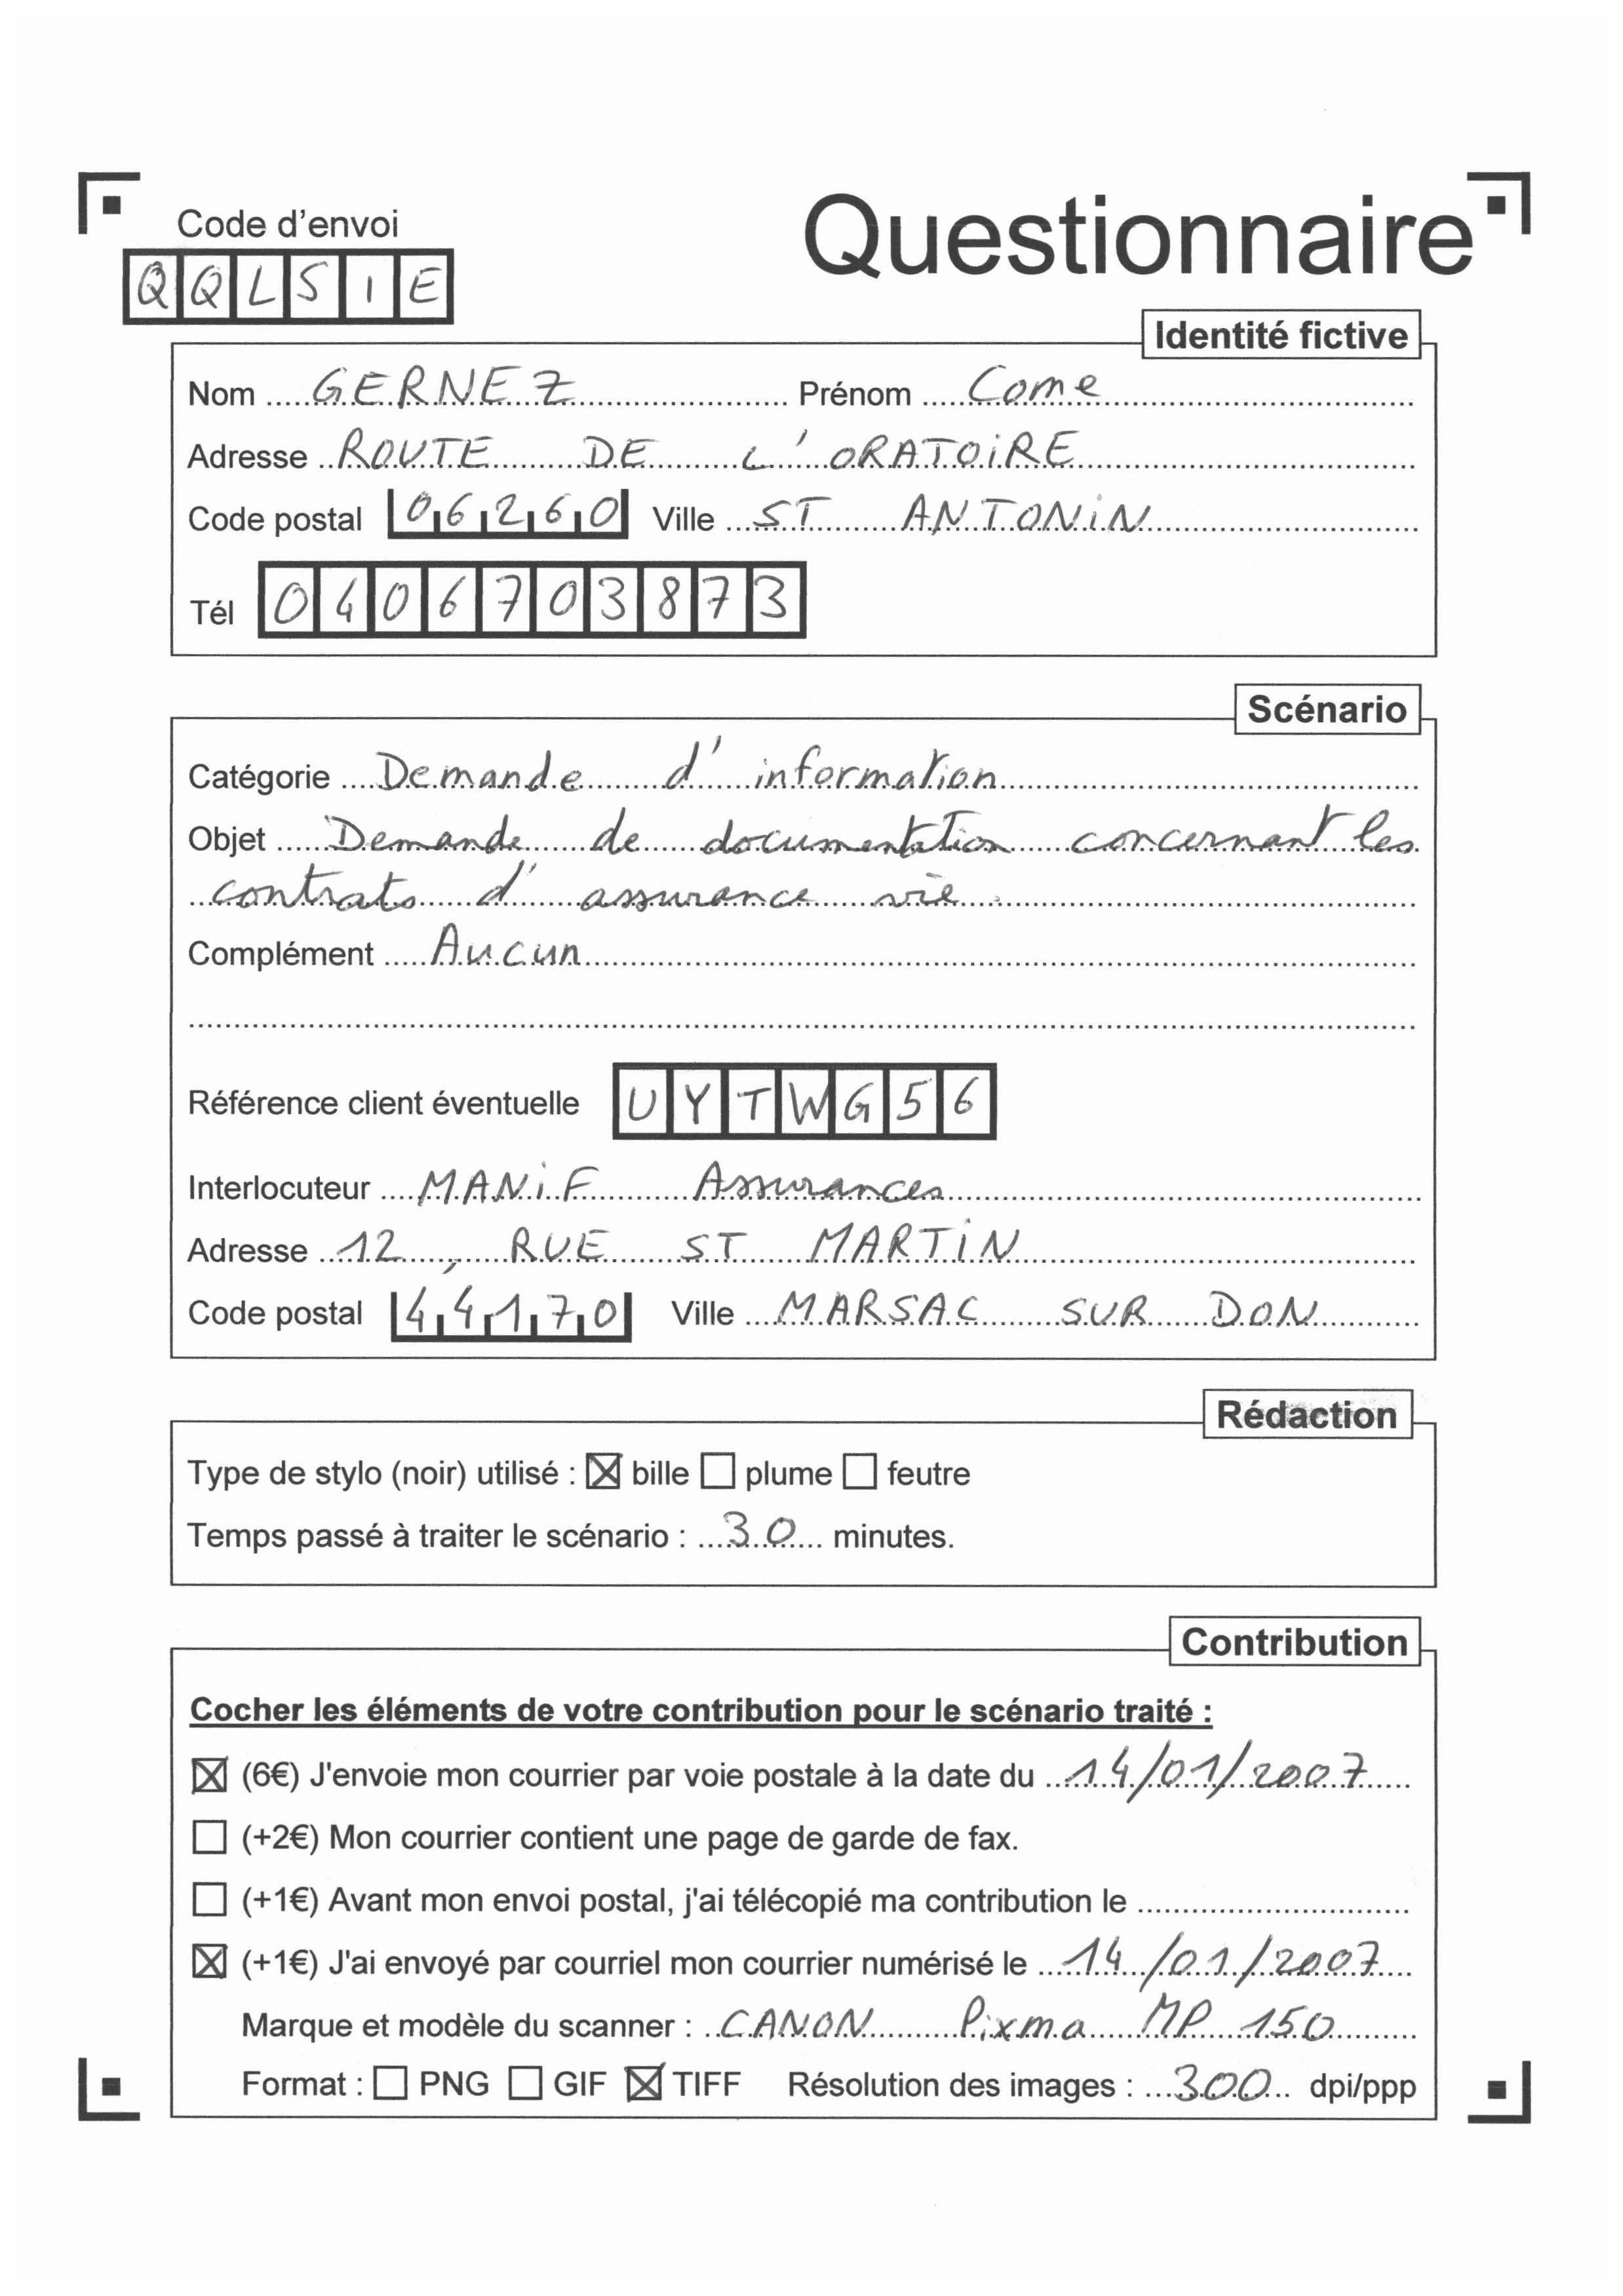 Code d'envoi
Questionnaire
QQLS1E
Identité fictive
Nom GERNEZ Prénom Come
Adresse ROUTE DE L'ORATOiRE
Code postal 06260 Ville ST ANTONiN
Tél 0406703873
Scénario
Catégorie Demande d'information
Objet Demande de documentation concernant les
contrats d'assurance vie.
Complément Aucun
Référence client éventuelle UYTWG56
Interlocuteur MANiF Assurances
Adresse 12, RUE ST MARTiN
Code postal 44170 Ville MARSAC SUR DON
Rédaction
Type de stylo (noir) utilisé : ☒ bille ☐ plume ☐ feutre
Temps passé à traiter le scénario : 30 minutes.
Contribution
Cocher les éléments de votre contribution pour le scénario traité :
☒ (6€) J'envoie mon courrier par voie postale à la date du 14/01/2007
☐ (+2€) Mon courrier contient une page de garde de fax.
☐ (+1€) Avant mon envoi postal, j'ai télécopié ma contribution le
☒ (+1€) J'ai envoyé par courriel mon courrier numérisé le 14/01/2007
Marque et modèle du scanner : CANON Pixma MP 150
Format : ☐ PNG ☐ GIF ☒ TIFF Résolution des images : 300 dpi/ppp